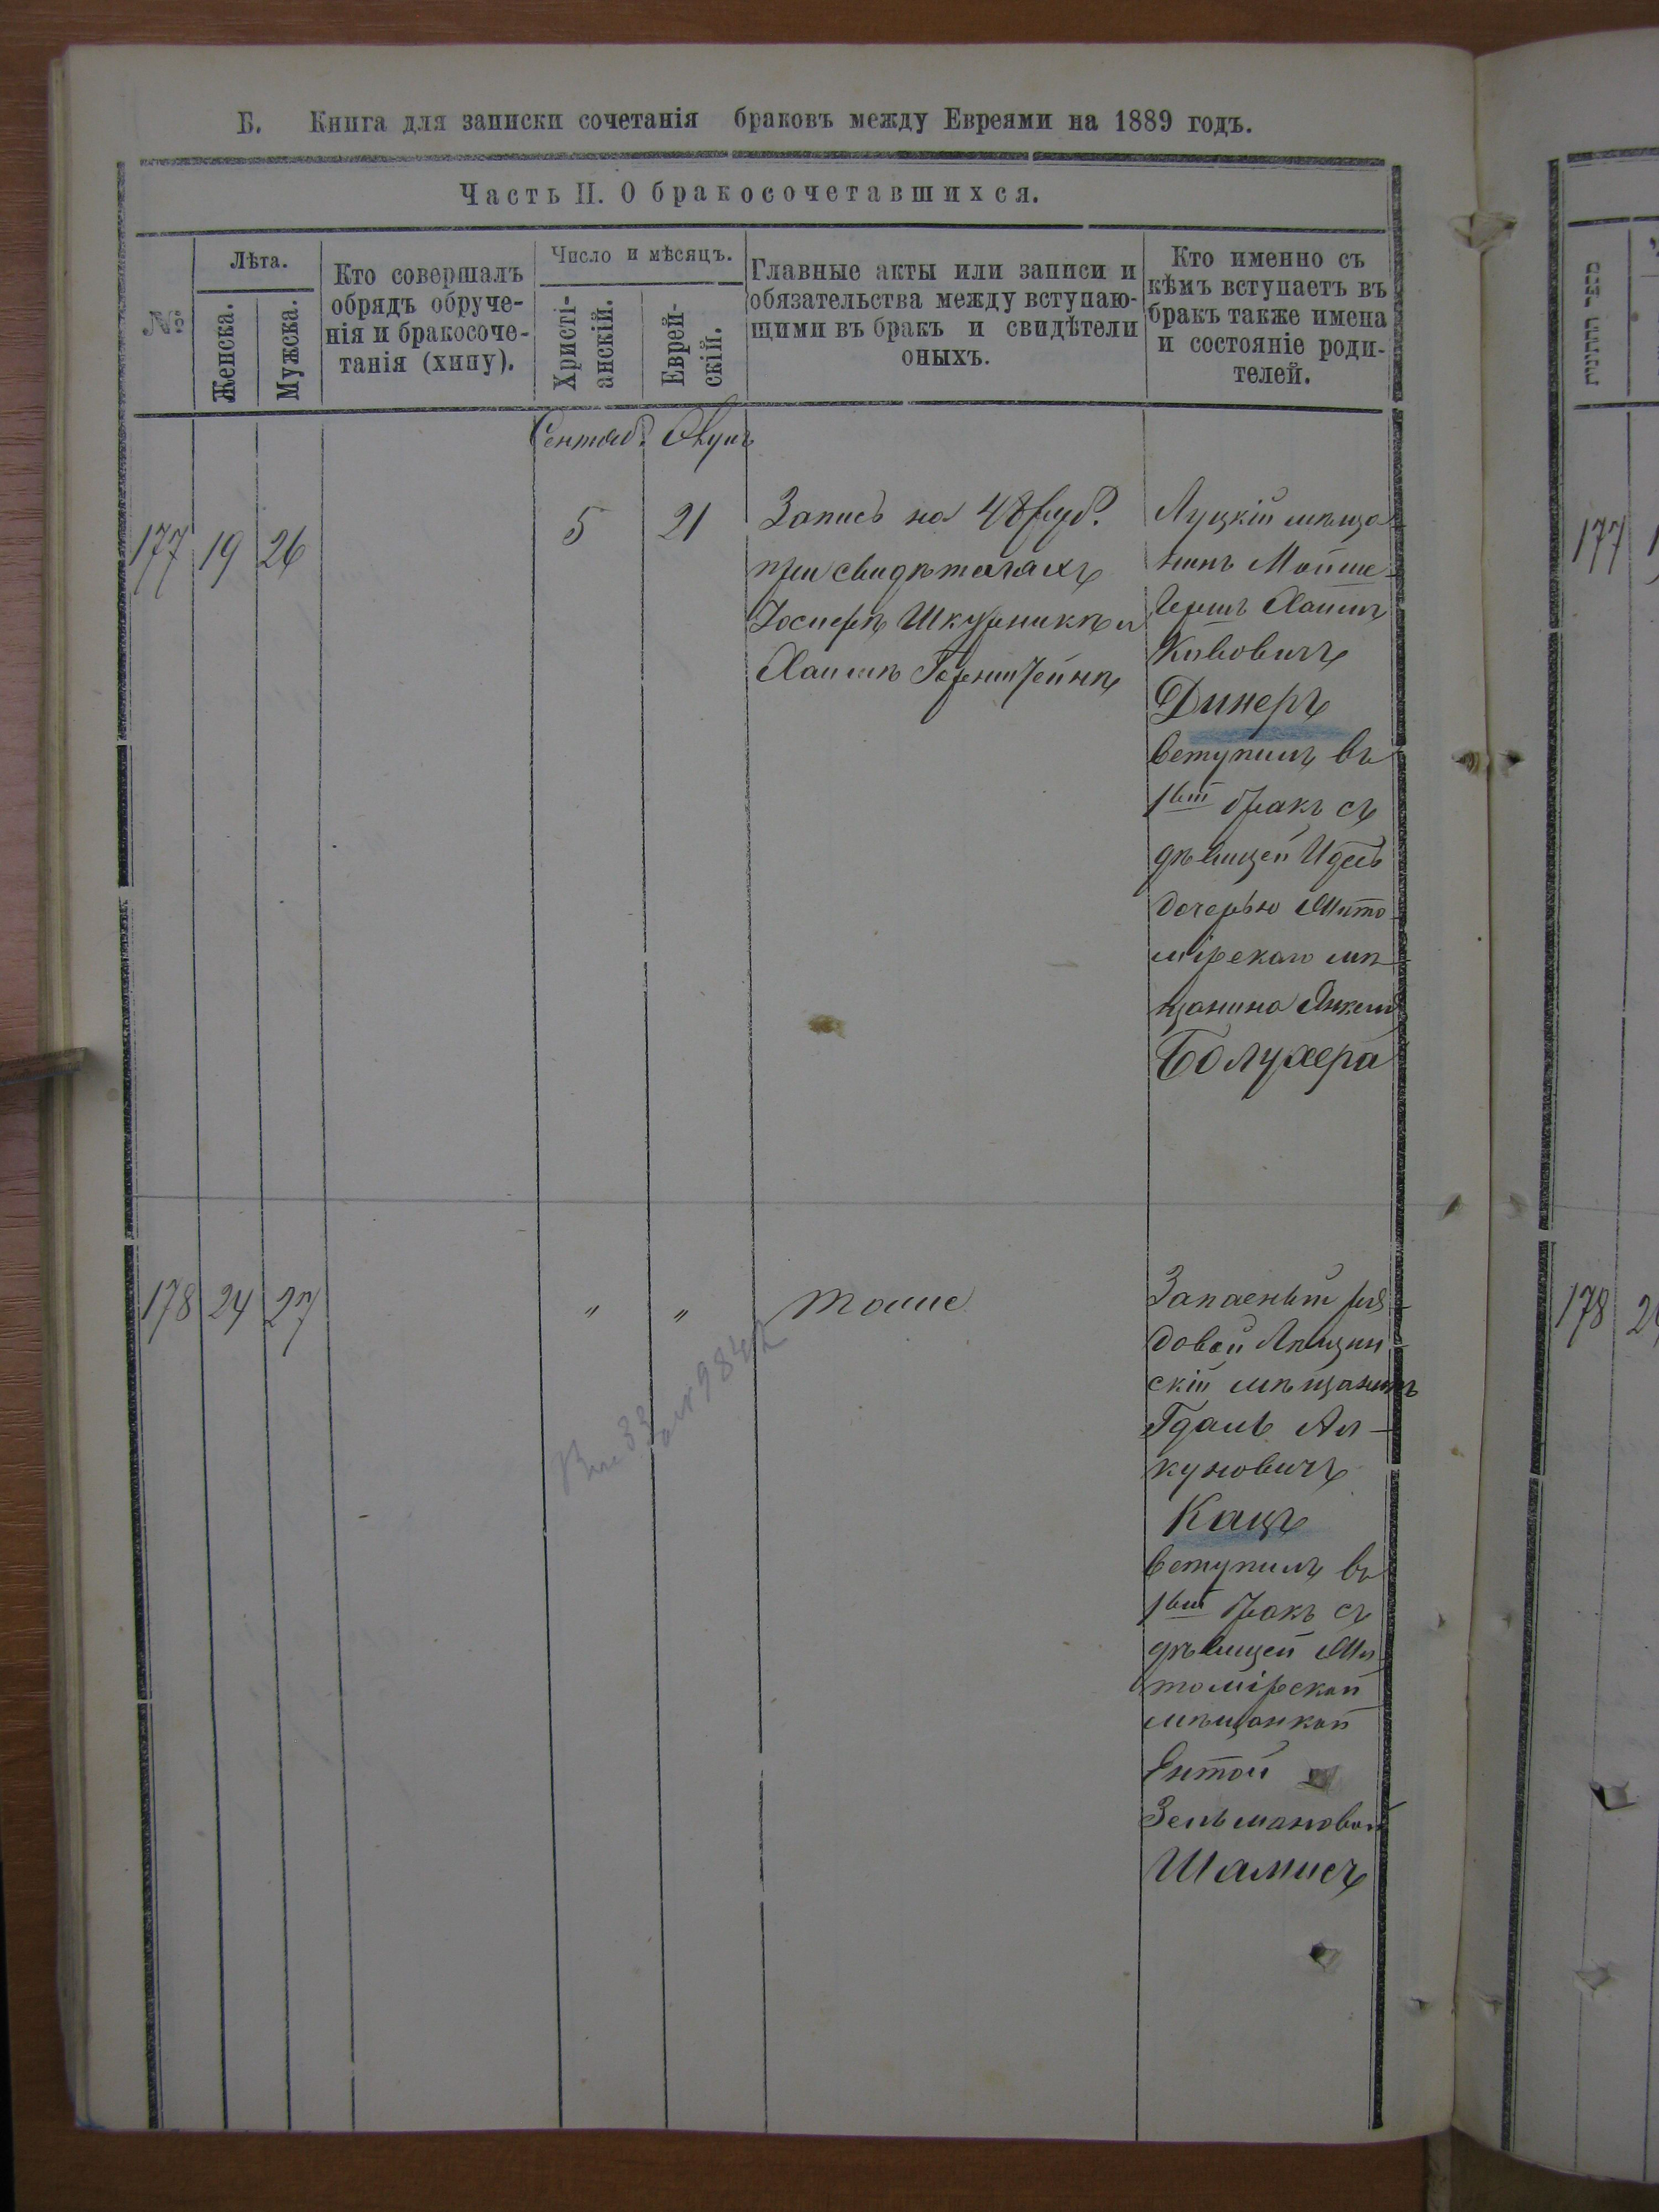 Б. Книга для записки сочетанія браковъ между Евреями на 1889 годъ.
Часть II. О бракосочетавшихся.
№
Лѣта.
Женска.
Мужска.
Кто совершалъ
обрядъ обруче-
нія и бракосоче-
танія (хипу).
Число и мѣсяцъ.
Христі-
анскій.
Еврей-
скій.
Главные акты или записи и
обязательства между вступаю-
щими въ бракъ и свидѣтели
оныхъ.
Кто именно съ
кѣмъ вступаетъ въ
бракъ также имена
и состояніе роди-
телей.
Сентяб.
177 19 26
5 21
Запись на 48 руб.
при свидѣтеляхъ
Іосифѣ Шкурникѣ и
Хаимѣ
Луцкій мѣща-
нинъ Мойше-
Гершъ Хаимъ
Кивовичъ
Динеръ
вступилъ въ
1ый бракъ съ
дѣвицей Идесъ
дочерью Жито-
мірскаго мѣ-
щанина Янкеля
Болухера
178 24 27
" "
тоже
Запасный ря-
довой
скій мѣщанинъ
Гдаль
Кацъ
вступилъ въ
1ый бракъ съ
дѣвицей Жи-
томірской
мѣщанкой
Ентой
Зельмановой
Шамисъ
177
178